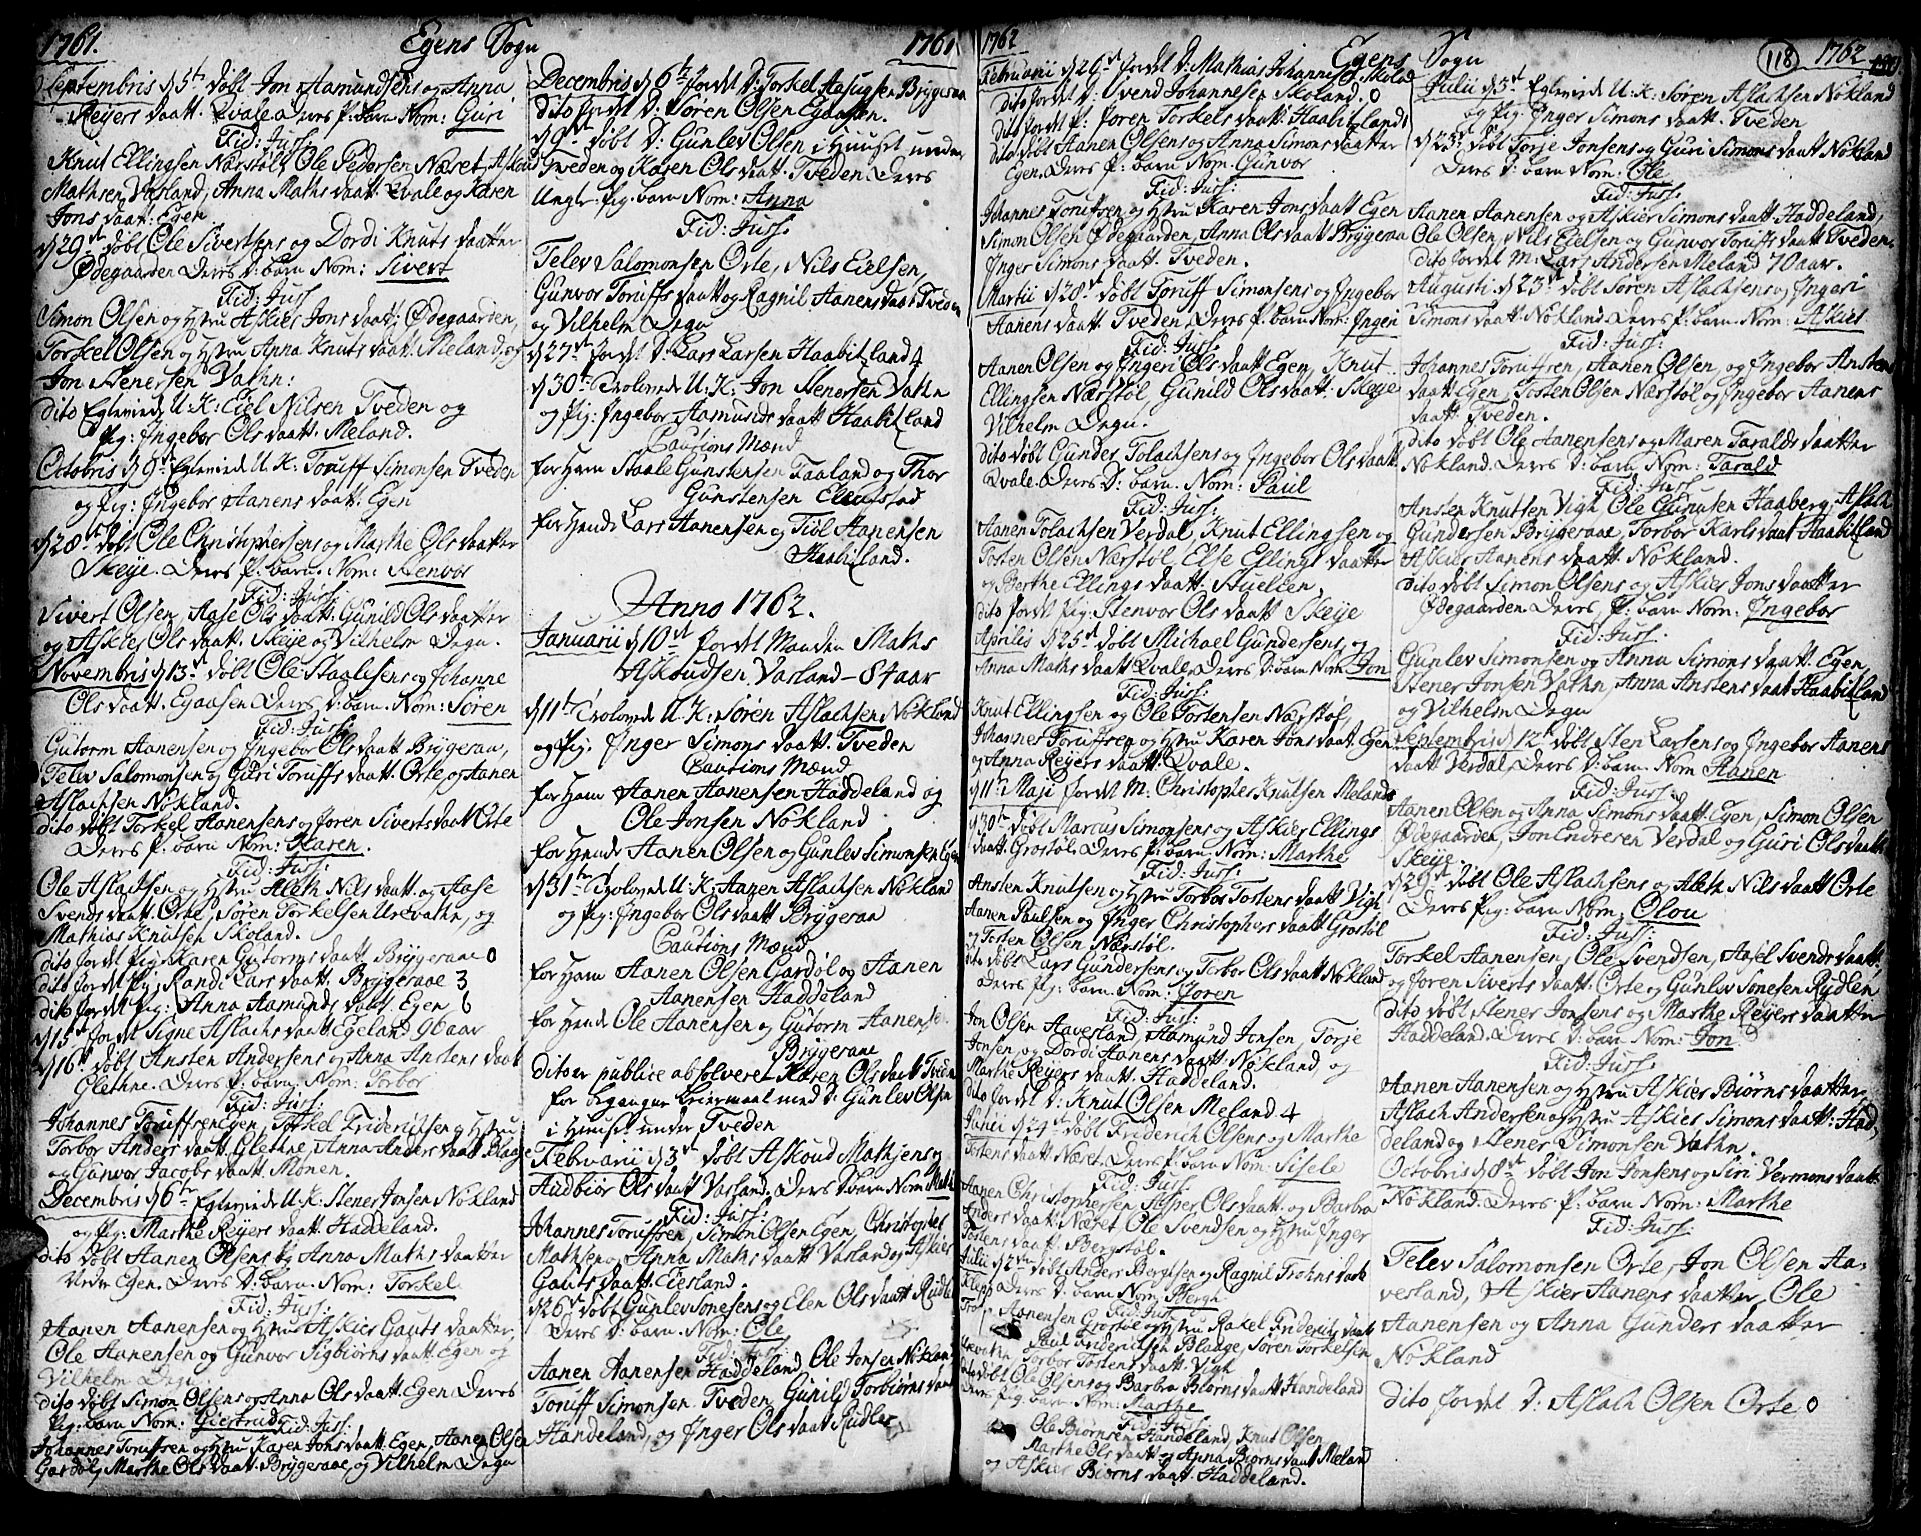 1761. Egens Sogn 1761
Septembris d 5t døbt Jon Aamundsens og Anna
Reyers daatt. Qvale. Deres P: barn Nom: Guri
Tid: Juss:
Knut Ellingsen Nærstøl, Ole Pedersen Næset, Askoud
Mathsen Varland, Anna Maths daatt. Qvale og Karen
Jons daat: Egen
d 29d døbt Ole Sivertsens og Dordi Knuts daatter
Ødegaarden Deres D: barn Nom: Sivert
Tid: Juss
Simon Olsen og Hstru Askier Jons daatt: Ødegaarden,
Torkel Olsen og Hstru Anna Knuts daatt. Meland, og
Jon Stenersen Vathn:
dito Egteviede U: K: Eiel Nilsen Tveden og
Pig: Ingebor Ols daatt. Meland.
Octobris d 9d Egteviede U: K: Toruff Simonsen Tveden
og Pig: Ingebor Aanens daatt. Egen
d 28d døbt Ole Christophersens og Marthe Ols daatter
Skeije. Deres P: barn. Nom: Stenvor
Tid: Juss:
Sivert Olsen, Aase Ols daatt. Gunild Ols daatter
og Askier Ols daatt. Skeije og Vilhelm Degn.
Novembris d 13d døbt Ole Staalesens og Johanne
Ols daatt. Egaasen Deres D: barn. Nom: Sören
Tid: Juss:
Gutorm Aanensen og Ingebor Ols daatt. Bryggeraae,
Telev Salomonsen og Guri Toruffs daatt. Orte og Aanen
Aslachsen Nökland.
dito døbt Torkel Aanensens og Jøren Siverts daatt Orte
Deres P: barn Nom: Karen.
Tid: Juss:
Ole Aslachsen og Hstru Aleth Nils daatt. og Aase
Svends daatt. Orte, Sören Torkelsen Urevathn, og
Mathias Knutsen Skoland.
dito jordet Pig: Karen Gutorms daatt. Bryggeraae 0
dito jordet Pig: Rande Lars daatt. Bryggeraae 3
dito jordet Pig: Anna Aamunds daatt. Egen 6
d 15d jordet Signe Aslachs daatt. Egeland 96 aar
d 16d døbt Ansten Andersens og Anna Anstens daatt
Glethne. Deres P: barn. Nom: Torbor
Tid: Juss:
Johannes Toruffsen Egen, Torkel Friderichsen og Hstru
Torbor Anders daatt. Glethne, Anna Anders daatt. Blaage
og Gunvor Jacobs daatt. Monen.
Decembris d 6te Egteviede U: K: Stener Jonsen Nökland
og Pig: Marthe Reyers daatt. Haddeland.
dito døbt Aanen Olsens og Anna Maths daatter
Nedre Egen. Deres D: barn. Nom: Torkel
Tid: Juss:
Aanen Aanensen og Hstru Askier Gauts daatter,
Ole Aanensen og Gunvor Sigbiörns daatt. Egen og
Vilhelm Degn
dito døbt Simon Olsens og Anna Ols daatt. Egen Deres
Pig. barn Nom: Giertrud Tid: Juss:
Johannes Toruffsen og Hstru Karen Jons daatt. Egen, Aanen Olsen
Gardöl, Marthe Ols daatt. Bryggeraae, og Vilhelm Degn
Decembris d 6te jordet D: Torkel Bryggeraae
dito jordet D: Sören Olsen Egaasen.
d 9d døbt D: Gunlev Olsen i Huuset under
Tveden og Karen Ols daatt. Tveden. Deres
Uegte Pig. barn Nom: Anna
Tid: Juss.
Telev Salomonsen Orte, Nils Eielsen,
Gunvor Toruffs daatt og Ragnil Aanens daat Tveden
og Vilhelm Degn
d 27d jordet D: Lars Larsen Haabitland 4
d 30d Trolovede U: K: Jon Stenersen Vathn
og Pig: Ingebor Aamunds daatt Haabitland
Cautions Mænd
for Ham Staale Gunstensen Taaland og Thor
Gunstensen
for Hende Lars Aanensen og Tiöl Aanensen
Haabitland.
Anno 1762.
Januarii d 10d jordet Manden Maths
Askoudsen Varland - 84 aar
d 11te Trolovede U: K: Sören Aslachsen Nökland
og Pig. Inger Simons daatt. Tveden
Cautions Mænd
for Ham Aanen Aanensen Haddeland og
Ole Jonsen Nökland
for Hende Aanen Olsen og Gunlev Simonsen Egen
d 31te Trolovede U: K: Aanen Aslachsen Nökland
og Pig: Ingebor Ols daatt Bryggeraae
Cautions Mænd
for Ham Aanen Olsen Gardöl og Aanen
Aanensen Haddeland
for Hende Ole Aanensen og Gutorm Aanensen
Bryggeraae
dito er publice absolveret Karen Ols daatt Tveden
for begangne Leiermaal med D: Gunlev Olsen
i Huuset under Tveden
Februarii d 3d døbt Askoud Mathsens og
Audbiör Ols daatt Varland. Deres D: barn Nom: Maths
Tid: Juss:
Johannes Toruffsen, Simon Olsen Egen, Christopher
Mathsen og Anna Maths daatt Varland og Askier
Gauts daatt. Eiesland.
d 26d døbt Gunlev Sonesens og Elen Ols daatt Rudlen
Deres D: barn. Nom: Ole
Tid: Juss:
Aanen Aanensen Haddeland, Ole Jonsen Nökland
Toruff Simonsen Tveden, Gunild Torbiörns daatt
Handeland, og Inger Ols daatt Rudlen
1762 Egens Sogn 118 1762
Februarii d 26d jordet D: Mathias Johannesen Skoland
dito jordet D: Svend Johannesen Skoland. 0
dito jordet P: Jøren Torkels daatt. Haabitland
dito døbt Aanen Olsens og Anna Simons daatter
Egen. Deres P: barn. Nom: Gunvor
Tid: Juss:
Johannes Toruffsen og Hstru Karen Jons daatt Egen
Simon Olsen Ødegaarden, Anna Ols daatt Bryggeraae
Inger Simons daatt. Tveden.
Martii d 28d døbt Toruff Simonsens og Ingebor
Aanens daatt. Tveden, Deres P: barn Nom: Ingeri
Tid: Juss
Aanen Olsen og Ingeri Ols daatt Egen, Knut
Ellingsen Nærstøl, Gunild Ols daatt. Skeije
Vilhelm Degn.
dito døbt Gunder Tolachsens og Ingebor Ols daatt
Qvale. Deres D: barn. Nom: Paul
Tid: Juss:
Aanen Tolachsen Verdal, Knut Ellingsen og
Tosten Olsen Nærstøl, Else Ellings daatter
og Berthe Ellings daatt. Stuelien.
dito jordet Pig: Stenvor Ols daatt Skeije
Aprilis d 25d døbt Michael Gundersens, og
Anna Maths daatt Qvale, Deres D: barn Nom: Jon
Tid: Juss:
Knut Ellingsen og Ole Tostensen Nærstøl,
Johannes Toruffsen og Hstru Karen Jons daatt. Egen
og Anna Reyers daatt. Qvale.
d 11te Maji jordet M. Christopher Knutsen Meland
d 20d døbt Marcus Simonsens og Askier Ellings
daatt. Grostöl. Deres P: barn Nom: Marthe
Tid: Juss:
Ansten Knutsen og Hstru Torbor Tostens daatt Vigh
Aanen Paulsen og Inger Christophers daatt Grostöl
og Tosten Olsen Nærstøl.
dito døbt Lars Gundersens og Torbor Ols daatt Nökland
Deres Pig: barn. Nom: Jøren
Tid: Juss:
Jon Olsen Aavesland, Aamund Jonsen, Torje
Jonsen, og Dordi Aanens daatt. Nökland, og
Marthe Reyers daatt. Haddeland.
dito jordet D: Knut Olsen Meland 4
Junii d 24d døbt Friderich Olsens og Martha
Tostens daatt Næset. Deres P: barn Nom: Sisele
Tid: Juss:
Aanen Christophersen, Ols daatt. og Barbra
Anders daatt. Næset Ole Svendsen og Hstru Inger
Tostens daatt. Bergstøl.
Julii d 2den døbt Anders Bergtsen og Ragnil Trohns daatt
Klepp Deres D: barn Nom: Bergh
Tid: Juss:
Aanensen Grostöl og Hstru Rakel Friderichs daatt
Paul Friderichsen Blaage, Sören Torkelsen
Urevathn Torbor Tostens daatt. Vigh
dito døbt Ole Olsens og Barbra Biörns daatt Handeland
Deres Pig. barn. Nom: Marthe
Tid: Juss:
Ole Biörnsen Handeland, Knut Olsen
Marthe Ols daatt og Anna Biörns daatt Meland
og Askier Biörns daatt. Haddeland.
Julii d 5d Egteviede U: K: Sören Aslachsen Nökland
og Pig: Inger Simons daatt. Tveden
d 25d døbt Torje Jonsens og Guri Simons daatt Nökland
Deres D: barn Nom: Ole
Tid: Juss:
Aanen Aanensen og Askier Simons daatt. Haddeland,
Ole Olsen, Nils Eielsen og Gunvor Toruffs daatt Tveden.
dito jordet M: Lars Andersen Meland 70 aar.
Augusti d 23d døbt Sören Aslachsens og Ingeri
Simons daatt. Nökland. Deres P: barn. Nom: Askier
Tid: Juss:
Johannes Toruffsen, Aanen Olsen, og Ingebor Anstens
daatt Egen, Tosten Olsen Nærstøl og Ingebor Aanens
daatt: Tveden.
dito døbt Ole Aanensens og Maren Taralds daatter
Nökland. Deres D: barn. Nom: Tarald
Tid: Juss:
Ansten Knutsen Vigh Ole Haaberg, Aslach
Gundersen Bryggeraae, Torbor Karls daatt Haabitland
Askier Aanens daatt. Nökland.
dito døbt Simon Olsens og Askier Jons daatter
Ødegaarden Deres P: barn Nom: Ingebor
Tid: Juss:
Gunlev Simonsen og Anna Simons daatt. Egen,
Stener Jonsen Vathn, Anna Anstens daat Haabitland
og Vilhelm Degn
Septembris d 12te døbt Sten Larsens og Ingebor Aanens
daatt Verdal, Deres D: barn. Nom Aanen
Tid: Juss:
Aanen Olsen og Anna Simons daatt. Egen, Simon Olsen
Ødegaarden, Jon Endresen Verdal og Guri Ols daatt
Skeije.
d 29d døbt Ole Aslachsens og Aleth Nils daatt Orte
Deres Pig: barn Nom: Olou
Tid: Juss:
Torkel Aanensen, Ole Svendsen, Aasel Svends daatt,
og Jøren Siverts daatt. Orte og Gunlev Sonesen Rydlen
dito døbt Stener Jonsens og Marthe Reyers daatter
Haddeland. Deres D: barn Nom: Jon
Tid: Juss:
Aanen Aanensen og Hstru Askier Biörns daatter
Aslach Andersen og Hstru Askier Simons daatt: Had,
deland og Stener Simonsen Vathn.
Octobris d 8d døbt Jon Jonsens og Siri Vermons daatt
Nökland. Deres P: barn Nom: Marthe
Tid: Juss:
Telev Salomonsen Orte, Jon Olsen Aa,
vesland, Askier Aanens daatter, Ole
Aanensen og Anna Gunders daatter
Nökland
dito jordet D: Aslach Olsen Orte 0